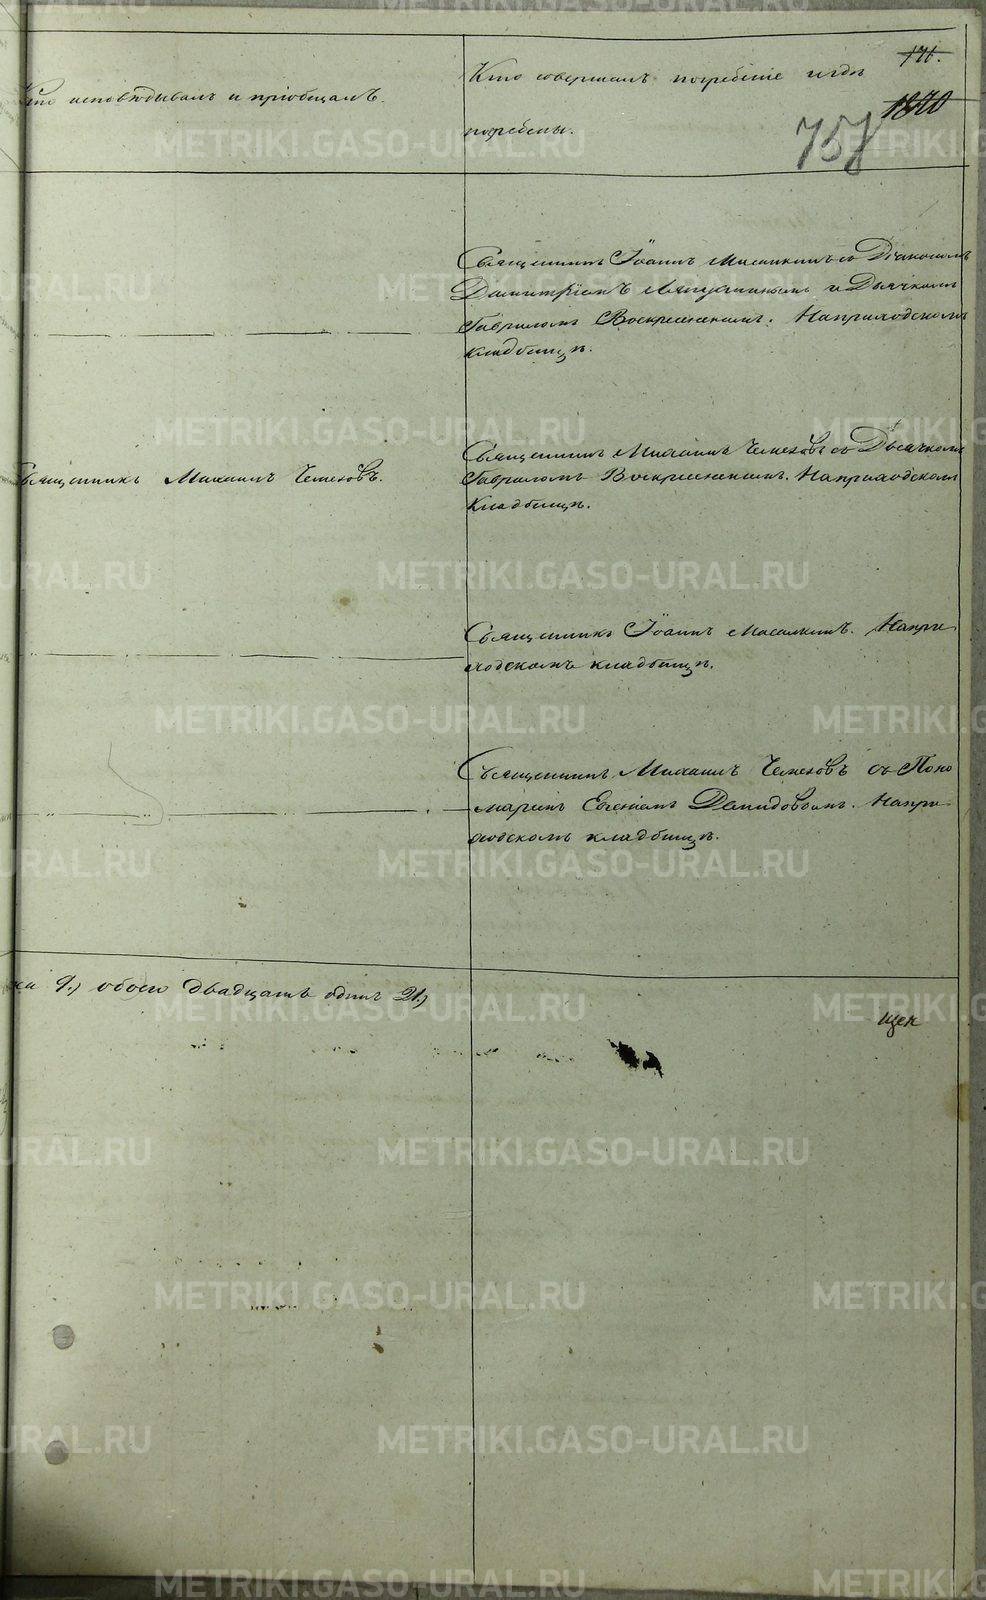 Кто исповѣдывалъ и пріобщалъ.
Кто совершалъ погребеніе и гдѣ
погребены.
176.
1870
757
Священникъ Іоаннъ съ Діакономъ
Димитріемъ и Дьячкомъ
Гавріиломъ Воскресенскимъ. На приходскомъ
кладбищѣ.
Священникъ Михаилъ
Священникъ Михаилъ съ Дьячкомъ
Гавріиломъ Воскресенскимъ. На приходскомъ
кладбищѣ.
Священникъ Іоаннъ На при
ходскомъ кладбищѣ.
Священникъ Михаилъ съ Поно
маремъ Евгеніемъ Демидовымъ. На при
ходскомъ кладбищѣ.
9) обоего двадцать одинъ 21)
METRIKI.GASO-URAL.RU